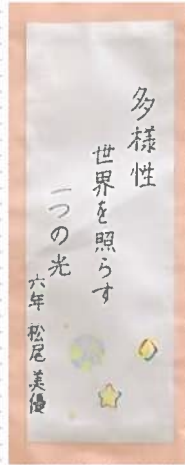 多様性
世界を照らす
一つの光
六年 松尾美優